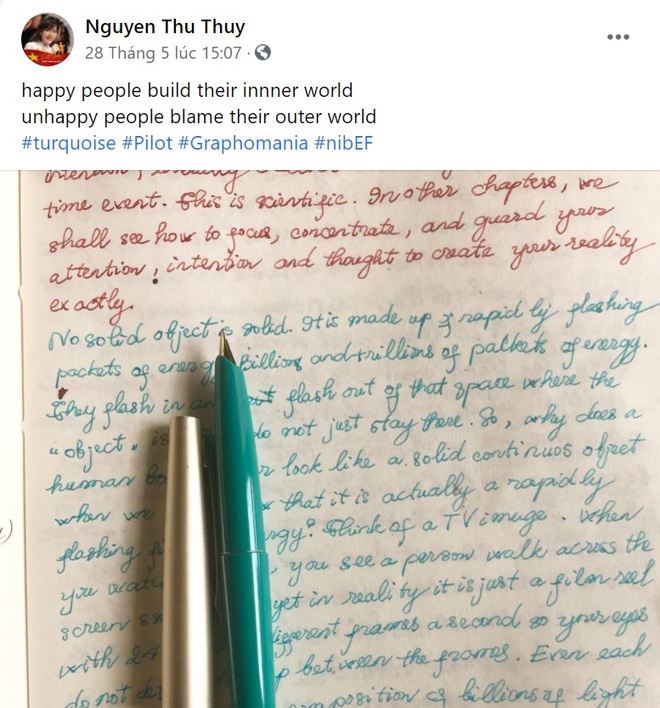 Nguyen Thu Thuy
28 Tháng 5 lúc 15:07 ·
happy people build their innner world
unhappy people blame their outer world
#turquoise #Pilot #Graphomania #nibEF
time event. This is scientific. In other chapters, we
shall see how to focus, concentrate, and guard your
attention, intention and thought to create your reality
exactly.
No solid object is solid. It is made up of rapid ly flashing
packets of energy Billions and trillions of packets of energy.
They flash in an out flash out of that space where the
"object" is do not just stay there. So, why does a
human look like a solid continuos object
when we that it is actually a rapidly
flashing ? Think of a TV image. When
you you see a person walk across the
screen yet in reality it is just a film reel
with 24 different frames a second so your eyes
do not between the frames. Even each
position of billions of light